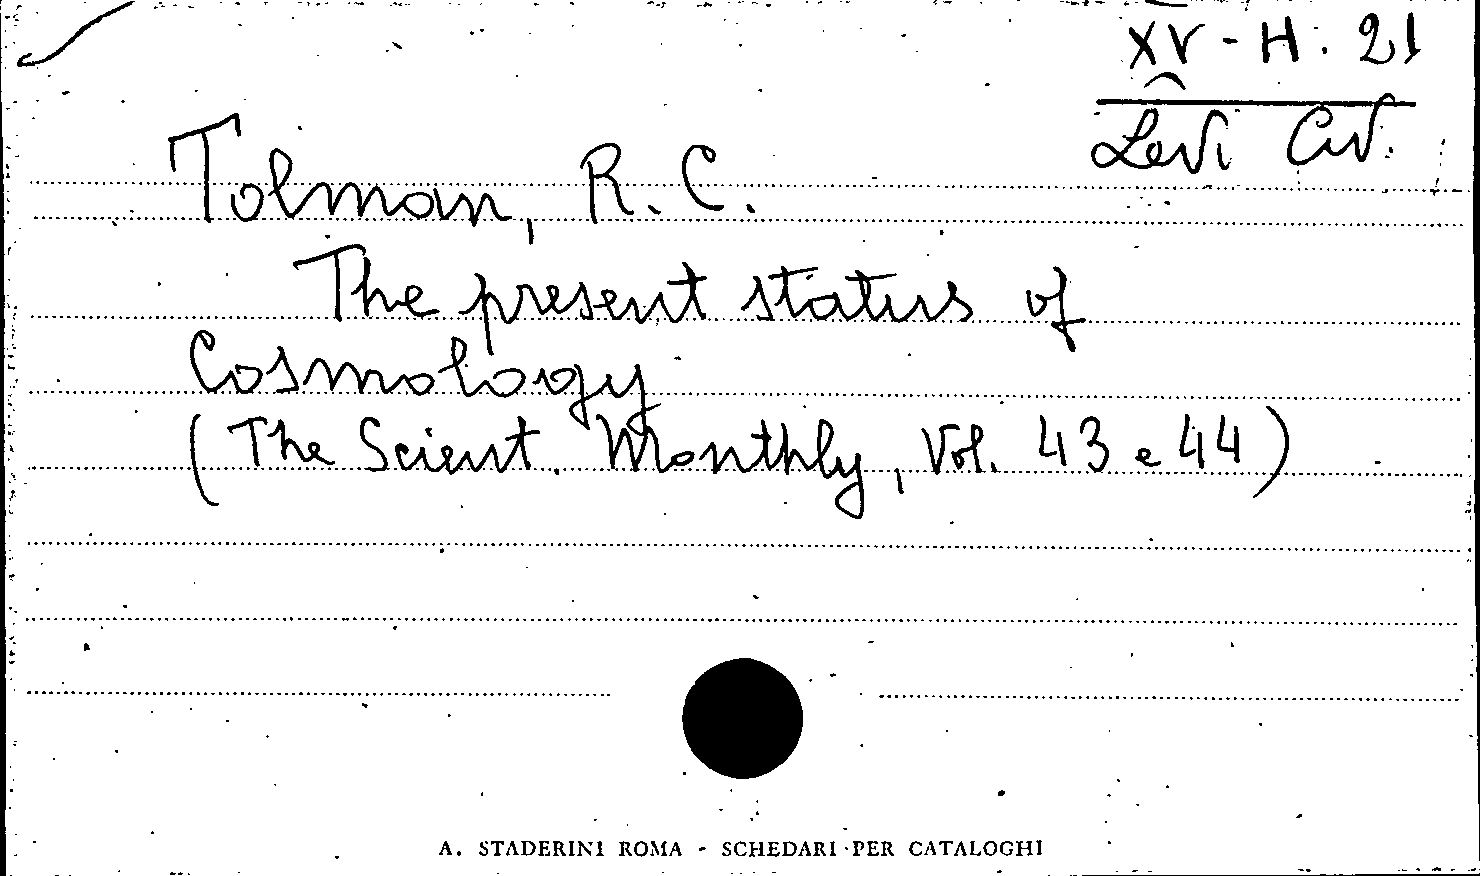 XV - H. 21
Levi Civ.
Tolman, R. C.
The present status of
Cosmology
(The Scient. Monthly, Vol. 43 e 44)
A. STADERINI ROMA - SCHEDARI PER CATALOGHI